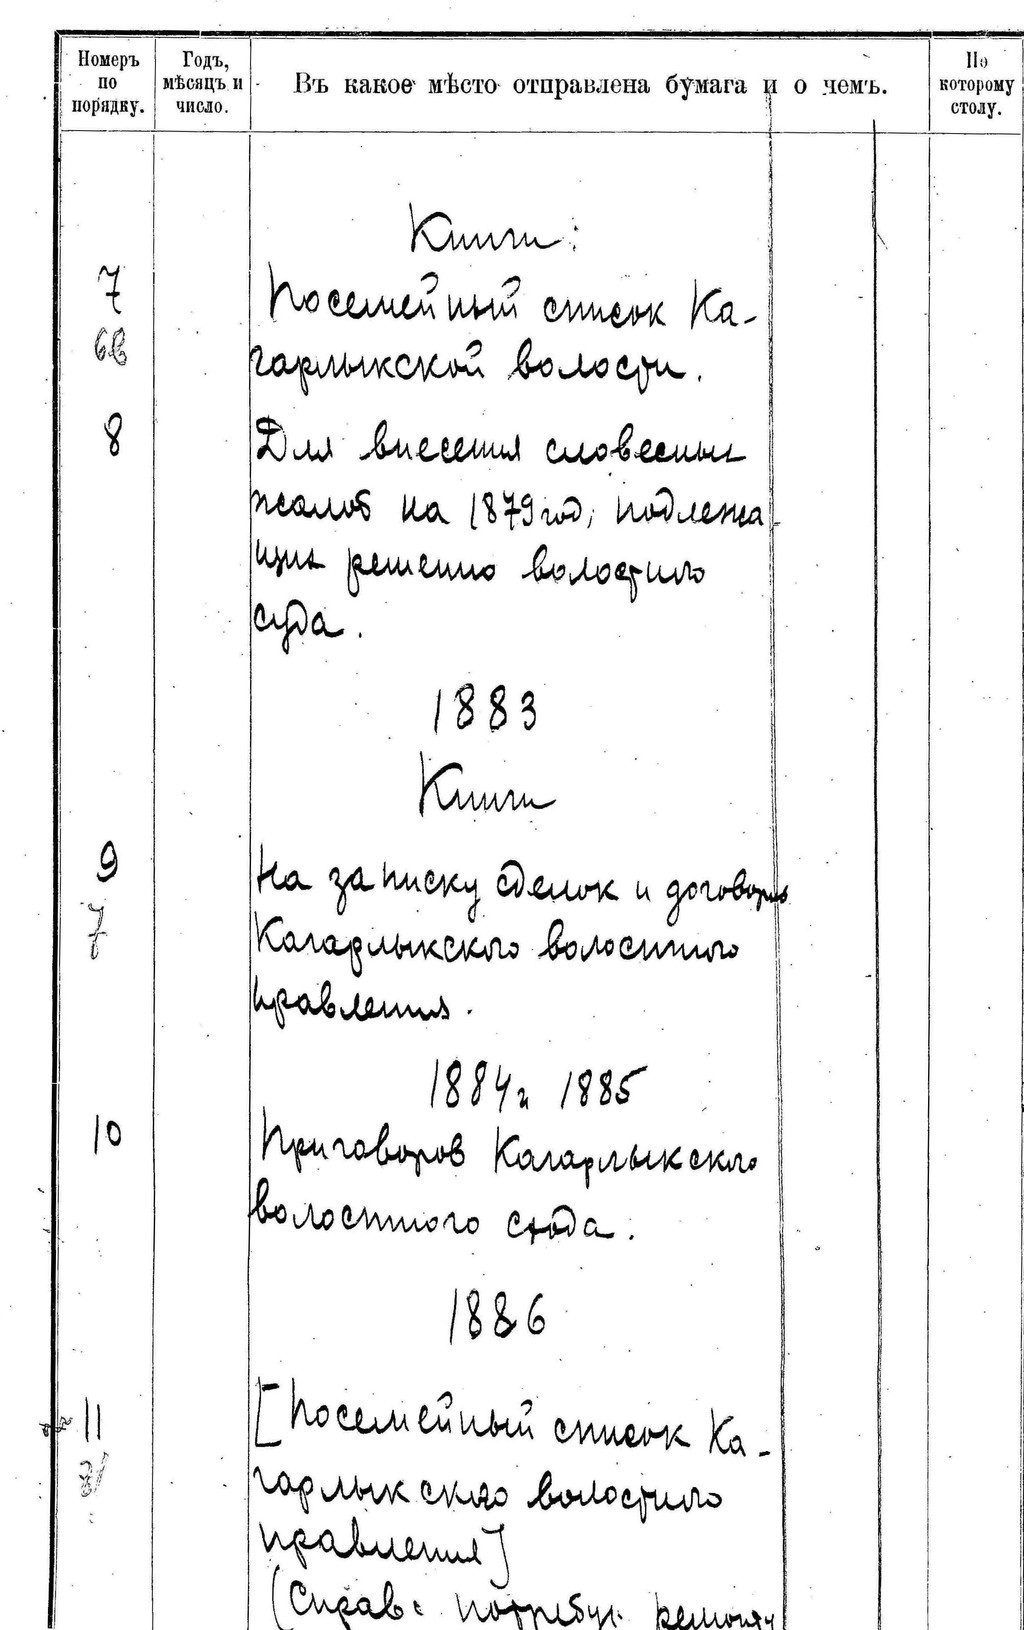 Номеръ по порядку.
Годъ, мѣсяцъ и число.
Въ какое мѣсто отправлена бумага и о чемъ.
По которому столу.
Книги:
7 Посемейный список Ка-
6в гарлыкской волости.
8 Для внесения словесных
жалоб на 1879 год, подлежа-
щих решению волостного
суда.
1883
Книги
9 На записку сделок и договоров
7 Кагарлыкского волостного
правления.
1884 и 1885
10 Приговоров Кагарлыкского
волостного схода.
1886
11 [Посемейный список Ка-
гарлыкского волостного
правления]
(Справ: потребує ремонту